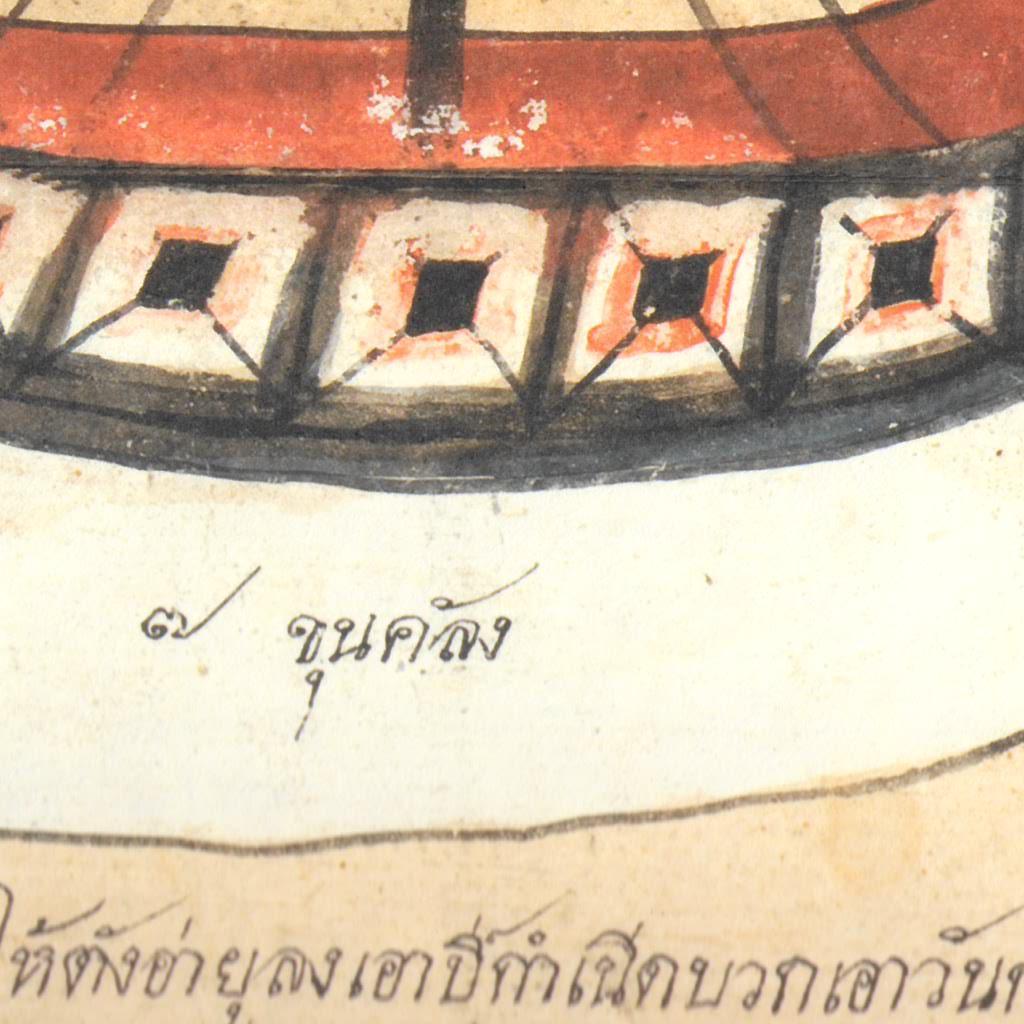 ๗ ขุนคลัง
ให้ตังอ่ายุลงเอาปีกำเนีดบวกเอาวัน